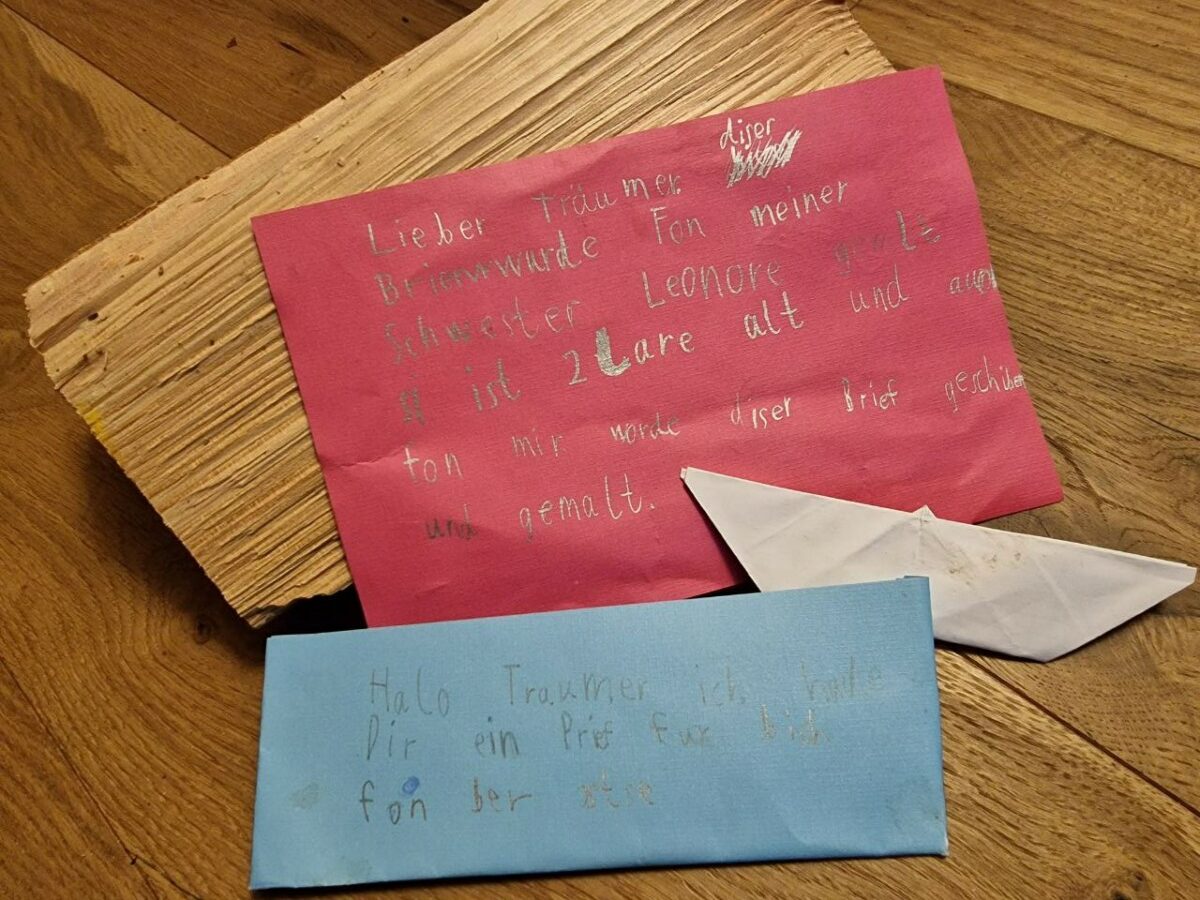 Lieber Träumer diser
Brief wurde Fon meiner
Schwester Leonore gemalt
si ist 2 Lare alt und auch
fon mir worde diser Brief geschiben
und gemalt.
Halo Traumer ich
Dir ein Prif fur
fon ber